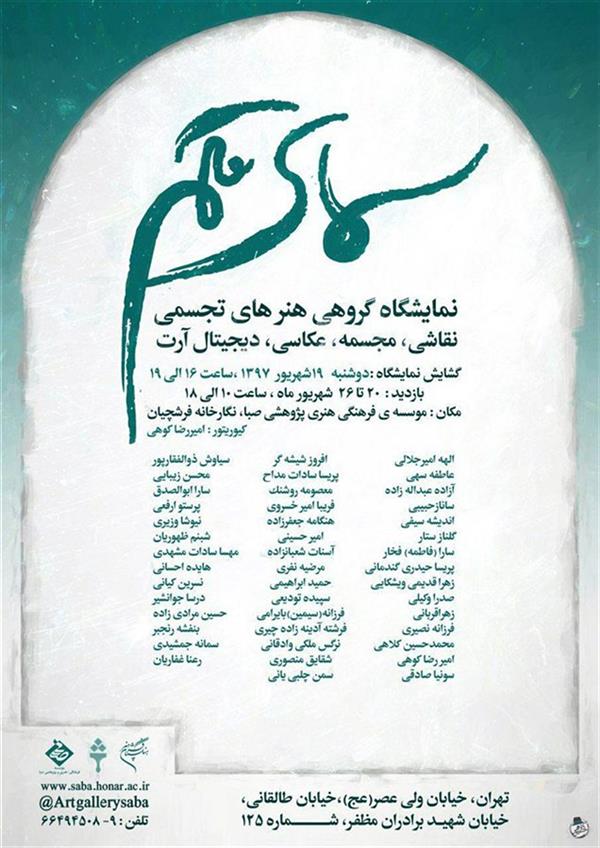 نمایشگاه گروهی هنرهای تجسمی
نقاشی، مجسمه، عکاسی، دیجیتال آرت
گشایش نمایشگاه : دوشنبه ۱۹ شهریور ۱۳۹۷ ،ساعت ۱۶ الی ۱۹
بازدید : ۲۰ تا ۲۶ شهریور ماه ، ساعت ۱۰ الی ۱۸
مکان : موسسه ی فرهنگی هنری پژوهشی صبا، نگارخانه فرشچیان
کیوریتور : امیررضا کوهی
الهه امیرجلالی
عاطفه سهی
آزاده عبداله زاده
سانازحبیبی
اندیشه سیفی
گلناز ستار
سارا (فاطمه) فخار
پریسا حیدری گندمانی
زهرا قدیمی ویشکایی
صدرا وکیلی
زهراقربانی
فرزانه نصیری
محمدحسین کلاهی
امیر رضا کوهی
سونیا صادقی
افروز شیشه گر
پریسا سادات مداح
معصومه روشنک
فریبا امیر خسروی
هنگامه جعفرزاده
امیر حسینی
آسنات شعبانزاده
مرضیه نفری
حمید ابراهیمی
سپیده تودیعی
فرزانه(سیمین)بایرامی
فرشته آدینه زاده چیری
نرگس ملکی وادقانی
شقایق منصوری
سمن چلبی یانی
سیاوش ذوالفقارپور
محسن زیبایی
سارا ابوالصدق
پرستو ارفعی
نیوشا وزیری
شبنم ظهوریان
مهسا سادات مشهدی
هایده احسانی
نسرین کیانی
درسا جوانشیر
حسین مرادی زاده
بنفشه رنجبر
سمانه جمشیدی
رعنا غفاریان
www.saba.honar.ac.ir
@Artgallerysaba
تلفن : ۹- ۶۶۴۹۴۵۰۸
تهران، خیابان ولی عصر(عج)،خیابان طالقانی،
خیابان شهید برادران مظفر، شماره ۱۲۵